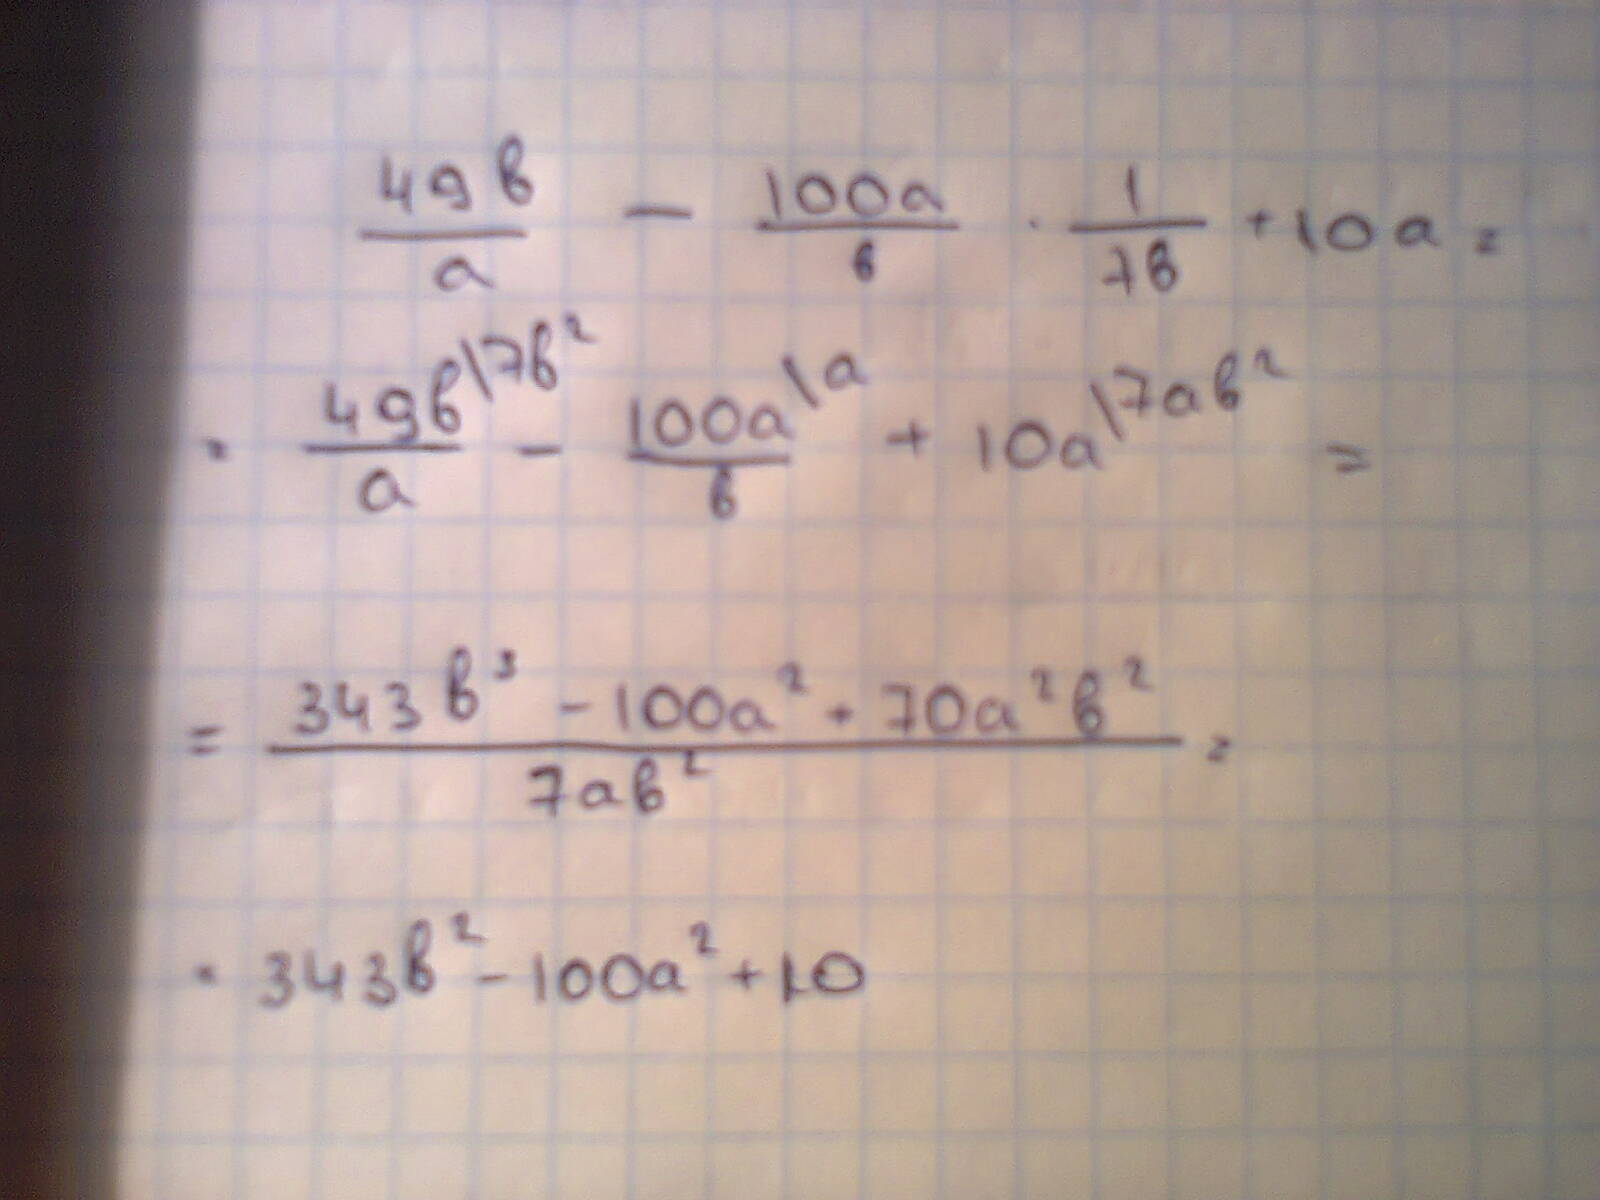 49в/a − 100a/в · 1/7в + 10a =
= 49в\7в²/a − 100a\a/в + 10a\7aв² =
= 343в³ − 100a² + 70a²в²/7aв² =
= 343в² − 100a² + 10